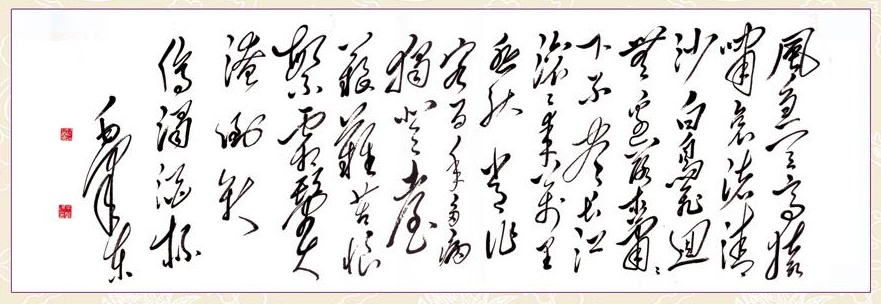 風急天高猿
嘯哀渚清
沙白鳥飛迴
無邊落木蕭〻
下不盡長江
滾〻來萬里
悲秋常作
客百年多病
獨登臺
艱難苦恨
繁霜鬢
潦倒新
停濁酒杯
毛澤東